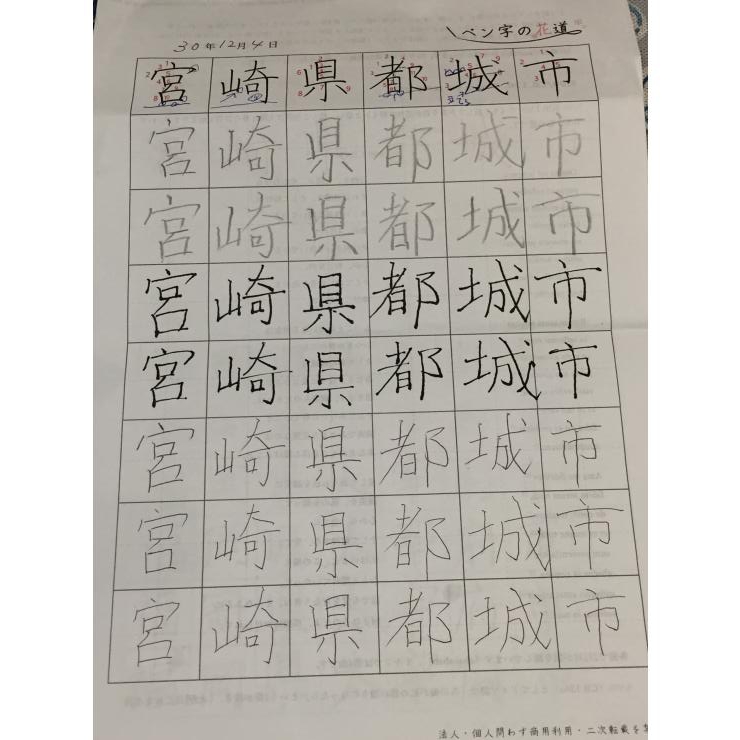 ペン字の花道
30年12月4日
宮崎県都城市
宮崎県都城市
宮崎県都城市
宮崎県都城市
宮崎県都城市
宮崎県都城市
宮崎県都城市
宮崎県都城市
法人・個人問わず商用利用・二次転載を